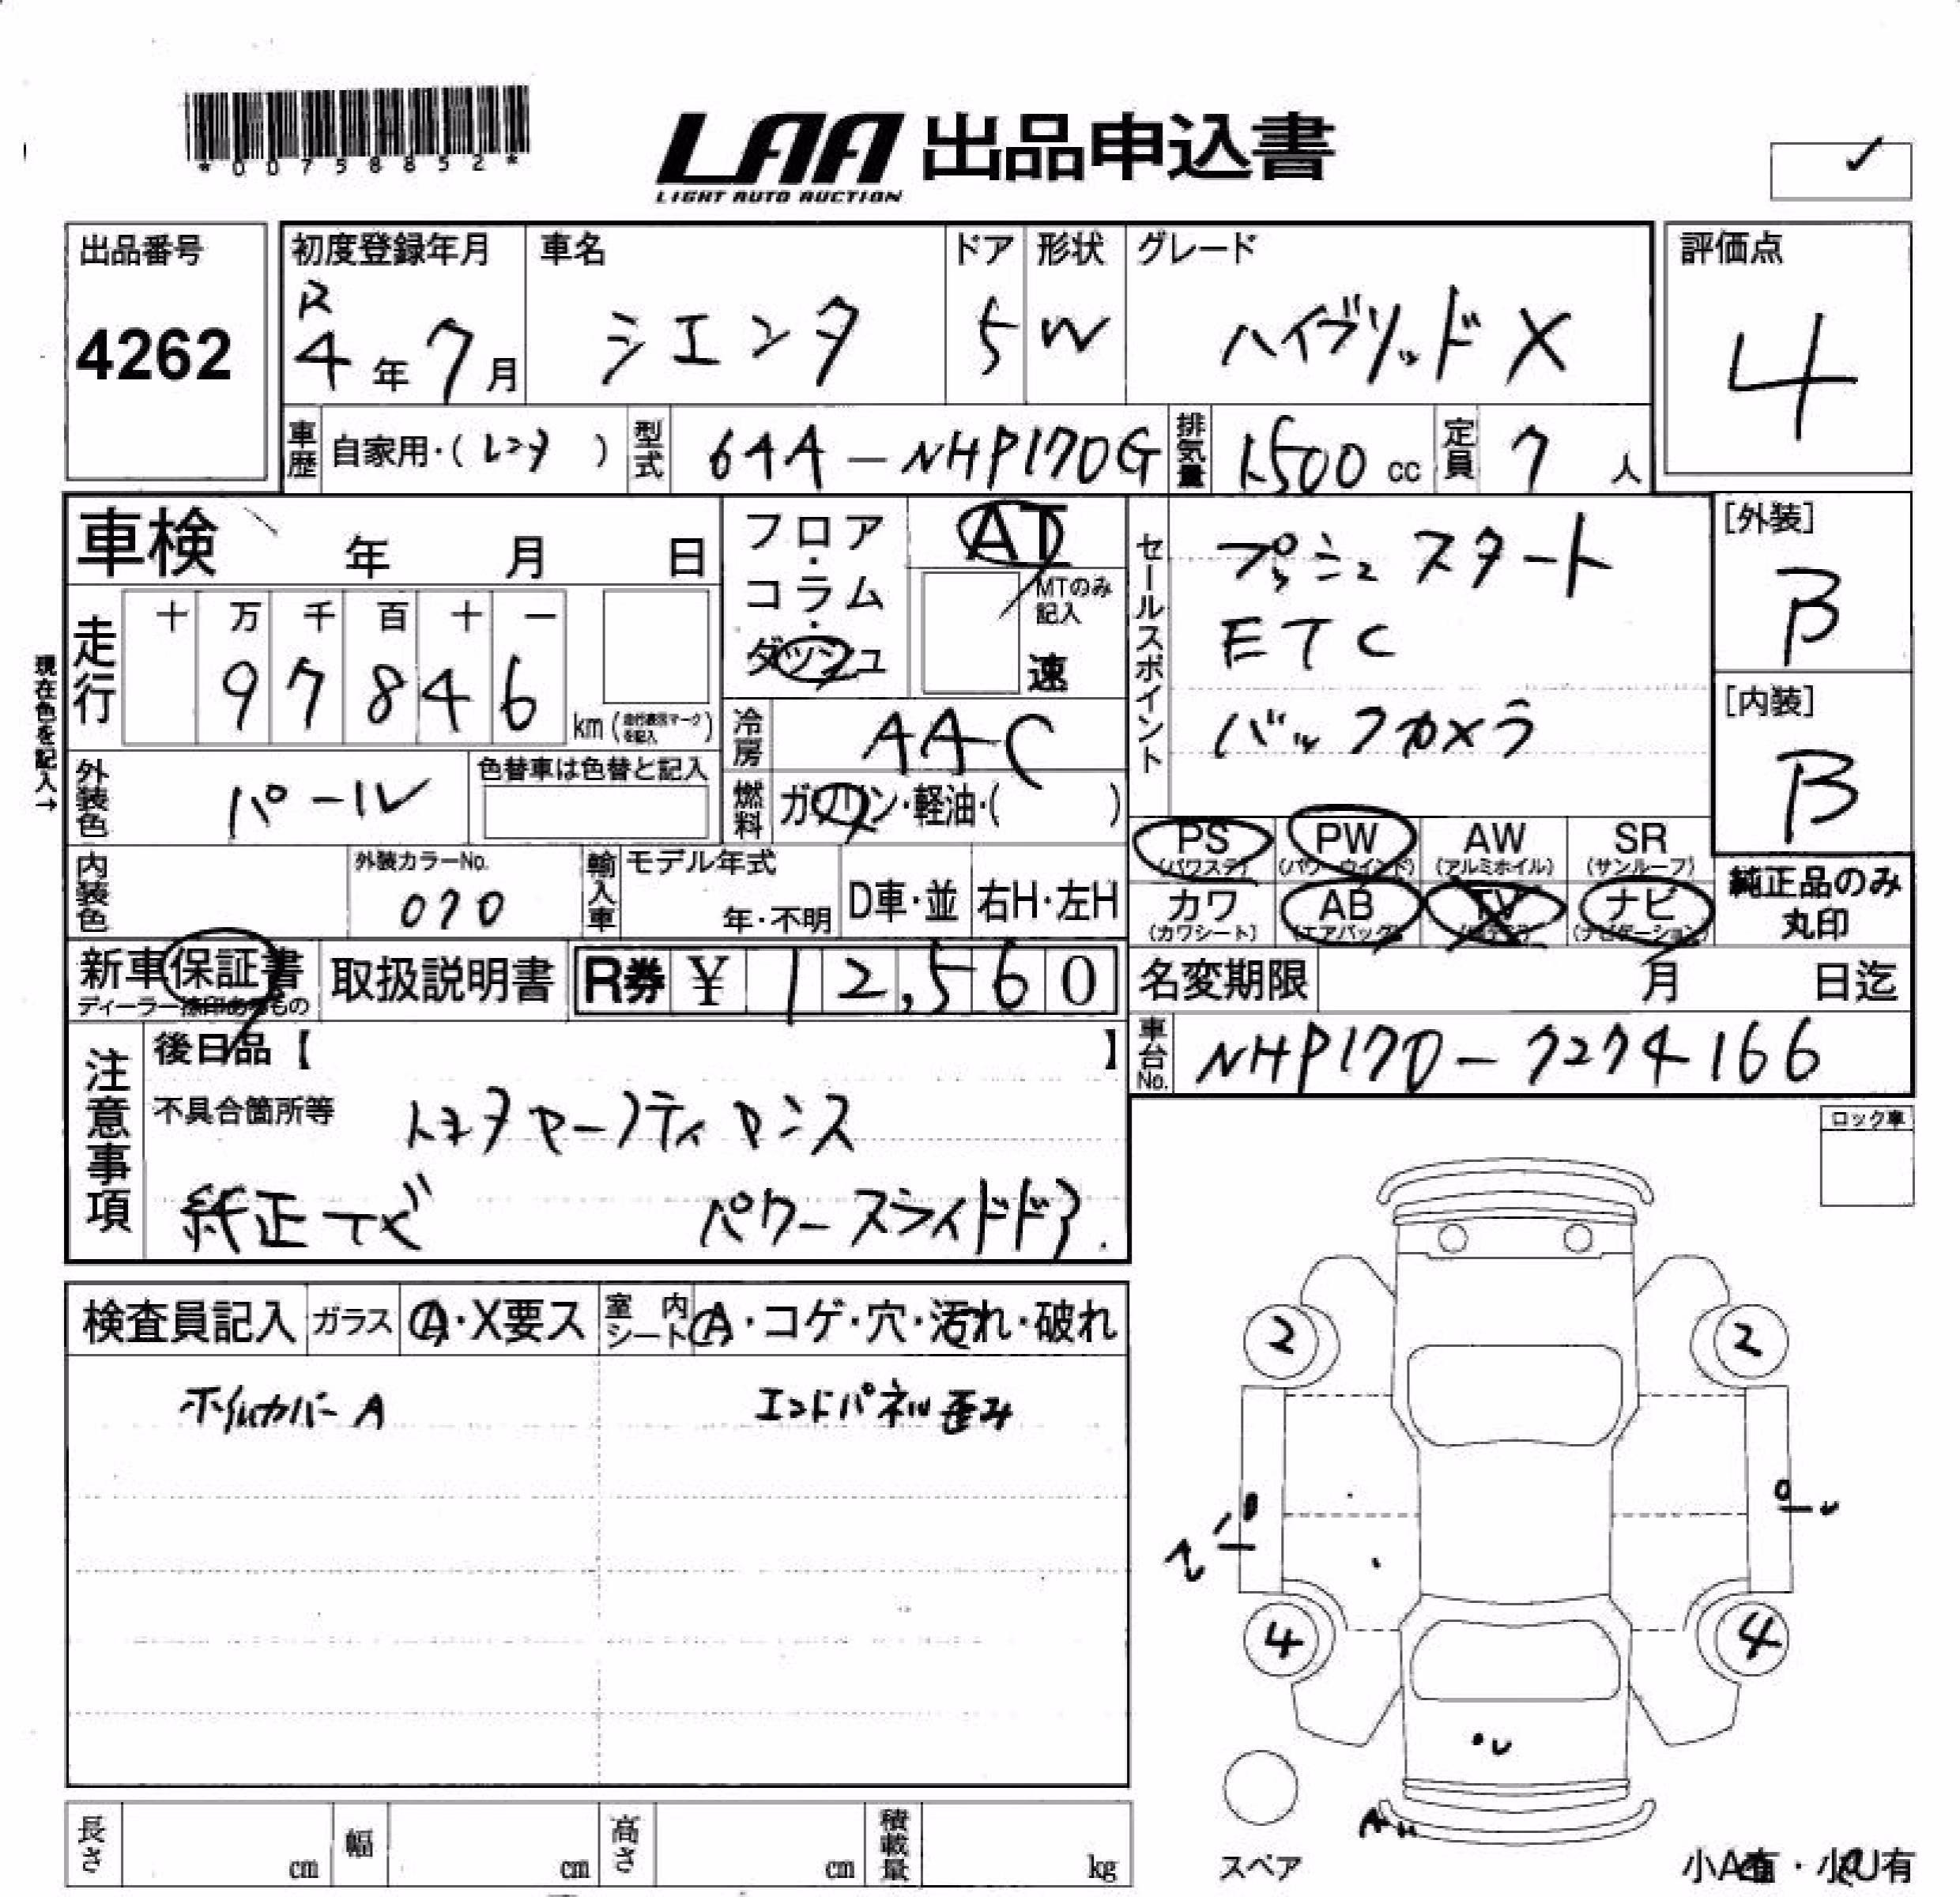 *00758852*
LAA 出品申込書
LIGHT AUTO AUCTION
出品番号 4262
初度登録年月 R4年7月
車名 シエンタ
ドア 5
形状 W
グレード ハイブリッドX
評価点 4
車歴 自家用・(レンタ)
型式 6AA-NHP170G
排気量 1500cc
定員 7人
車検 年 月 日
フロア・コラム・ダッシュ
AT
MTのみ記入
速
セールスポイント
プッシュスタート
ETC
バックカメラ
[外装] B
[内装] B
現在色を記入→
走行 十 万 千 百 十 一
97846 km
冷房 AAC
外装色 パール
色替車は色替と記入
燃料 ガソリン・軽油・( )
PS (パワステ) PW (パワーウインド) AW (アルミホイル) SR (サンルーフ)
カワ (カワシート) AB (エアバッグ) TV ナビ (ナビゲーション)
純正品のみ丸印
内装色
外装カラーNo. 070
輸入車 モデル年式 年・不明 D車・並 右H・左H
新車保証書 取扱説明書 R券 ¥12,560
名変期限 月 日迄
車台No. NHP170-7274166
注意事項
後日品【 】
不具合箇所等
トヨタセーフティセンス
純正ナビ パワースライドドア
ロック車
検査員記入 ガラス A・X要ス 室内シート A・コゲ・穴・汚れ・破れ
ホイルカバーA エンドパネル歪み
2 2
U
4 4
U
スペア
小A有・小U有
長さ cm 幅 cm 高さ cm 積載量 kg